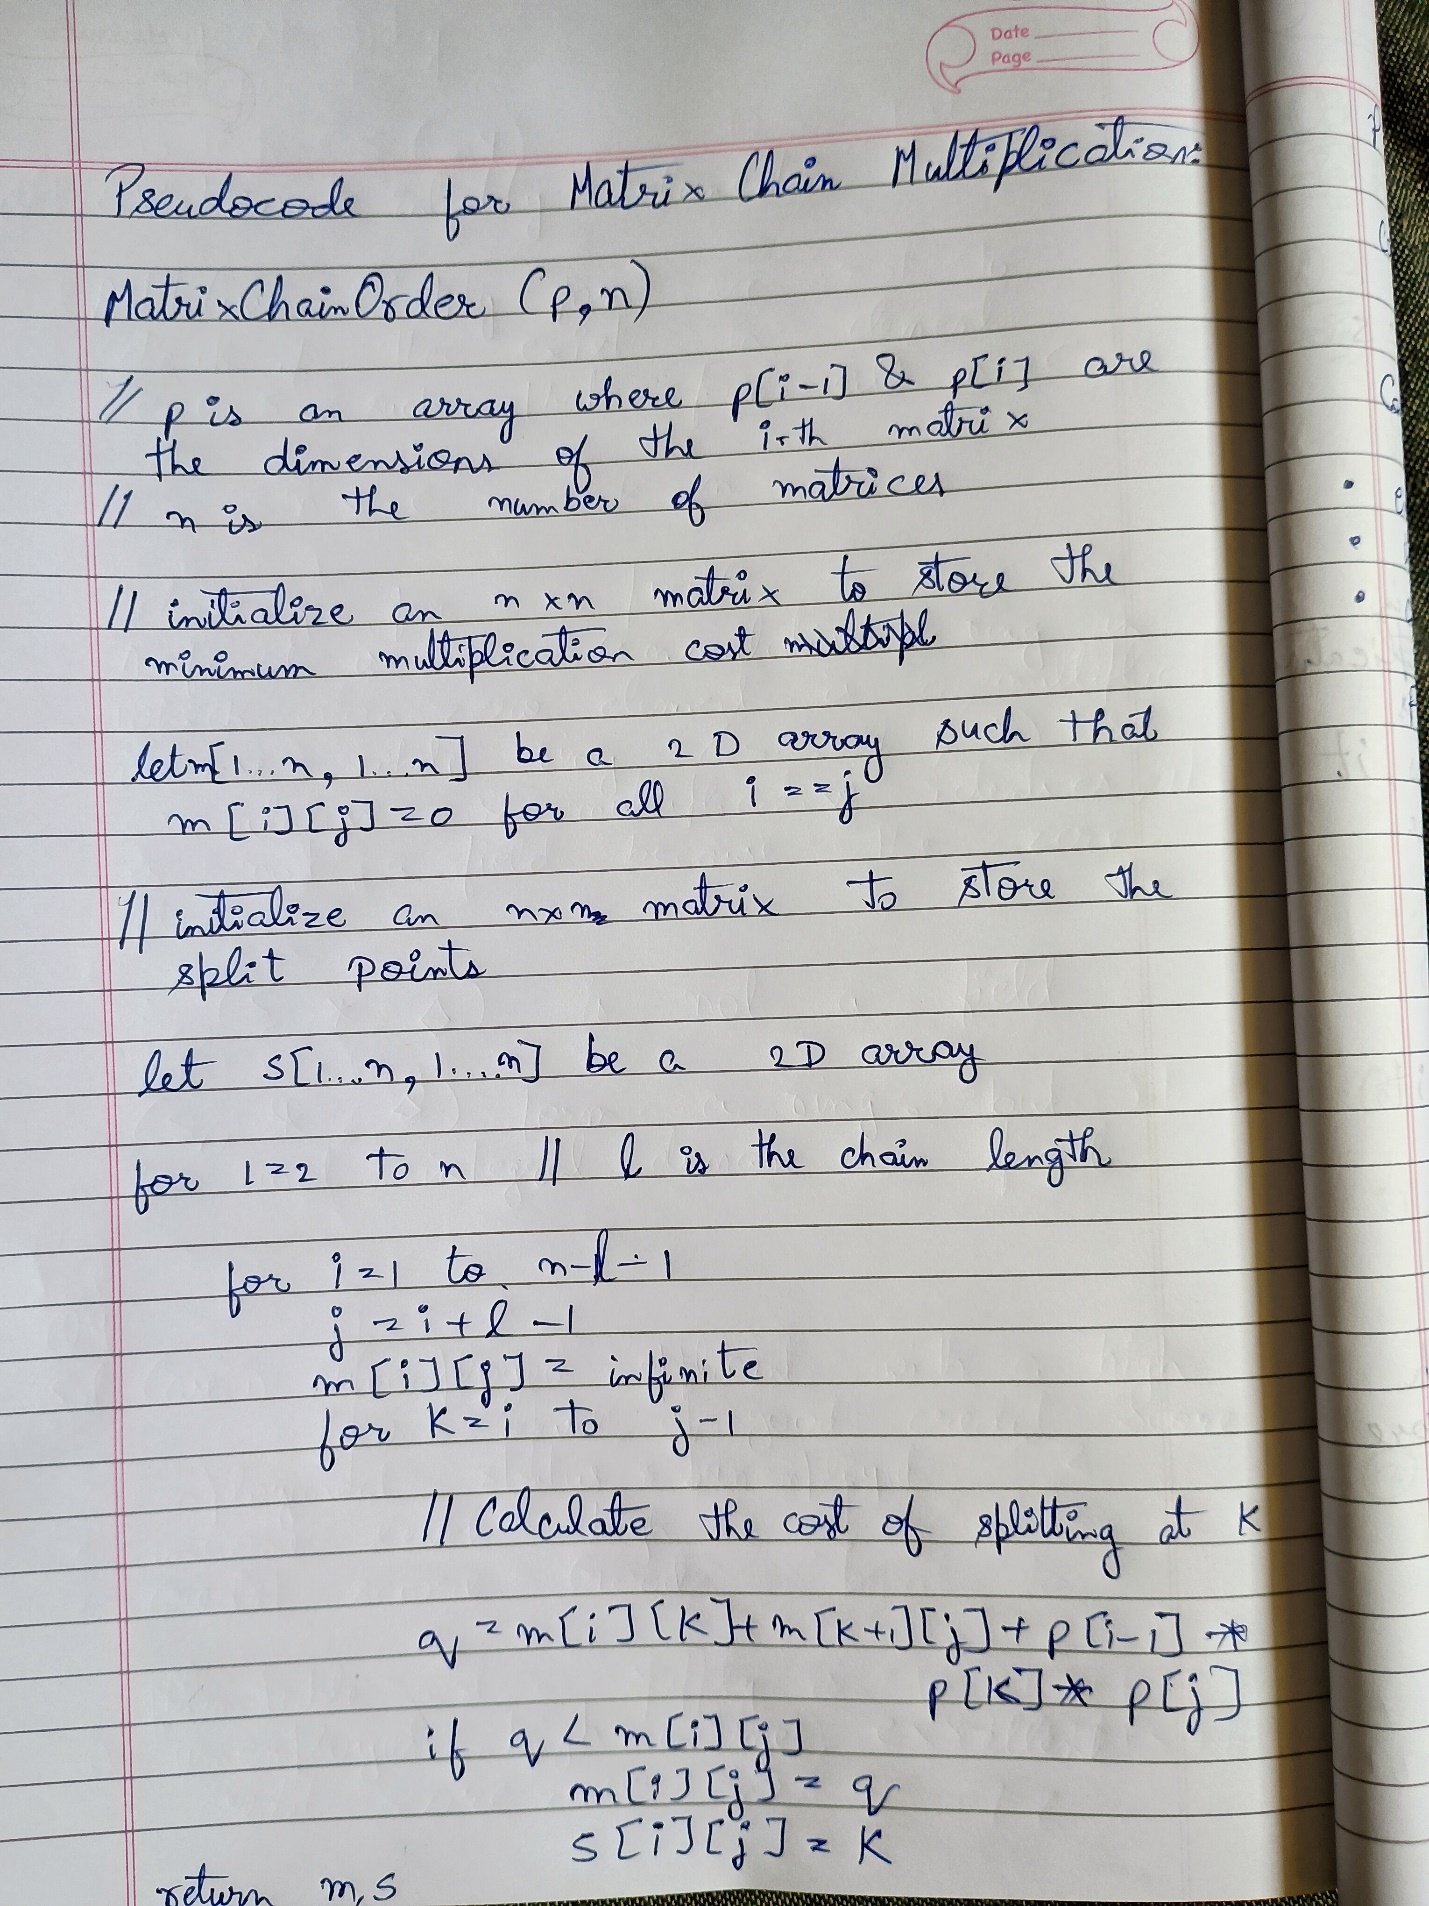 Date
Page
Pseudocode for Matrix Chain Multiplication:
MatrixChainOrder (p,n)
// p is an array where p[i-1] & p[i] are
the dimensions of the i-th matrix
// n is the number of matrices
// initialize an n x n matrix to store the
minimum multiplication cost
let m[1...n, 1...n] be a 2D array such that
m[i][j]=0 for all i==j
// initialize an nxn matrix to store the
split points
let s[1...n, 1....n] be a 2D array
for l=2 to n // l is the chain length
for i=1 to n-l-1
j=i+l-1
m[i][j] = infinite
for k=i to j-1
// Calculate the cost of splitting at k
q = m[i][k]+m[k+1][j]+p[i-1]*
p[k]* p[j]
if q < m[i][j]
m[i][j] = q
s[i][j] = k
return m,s